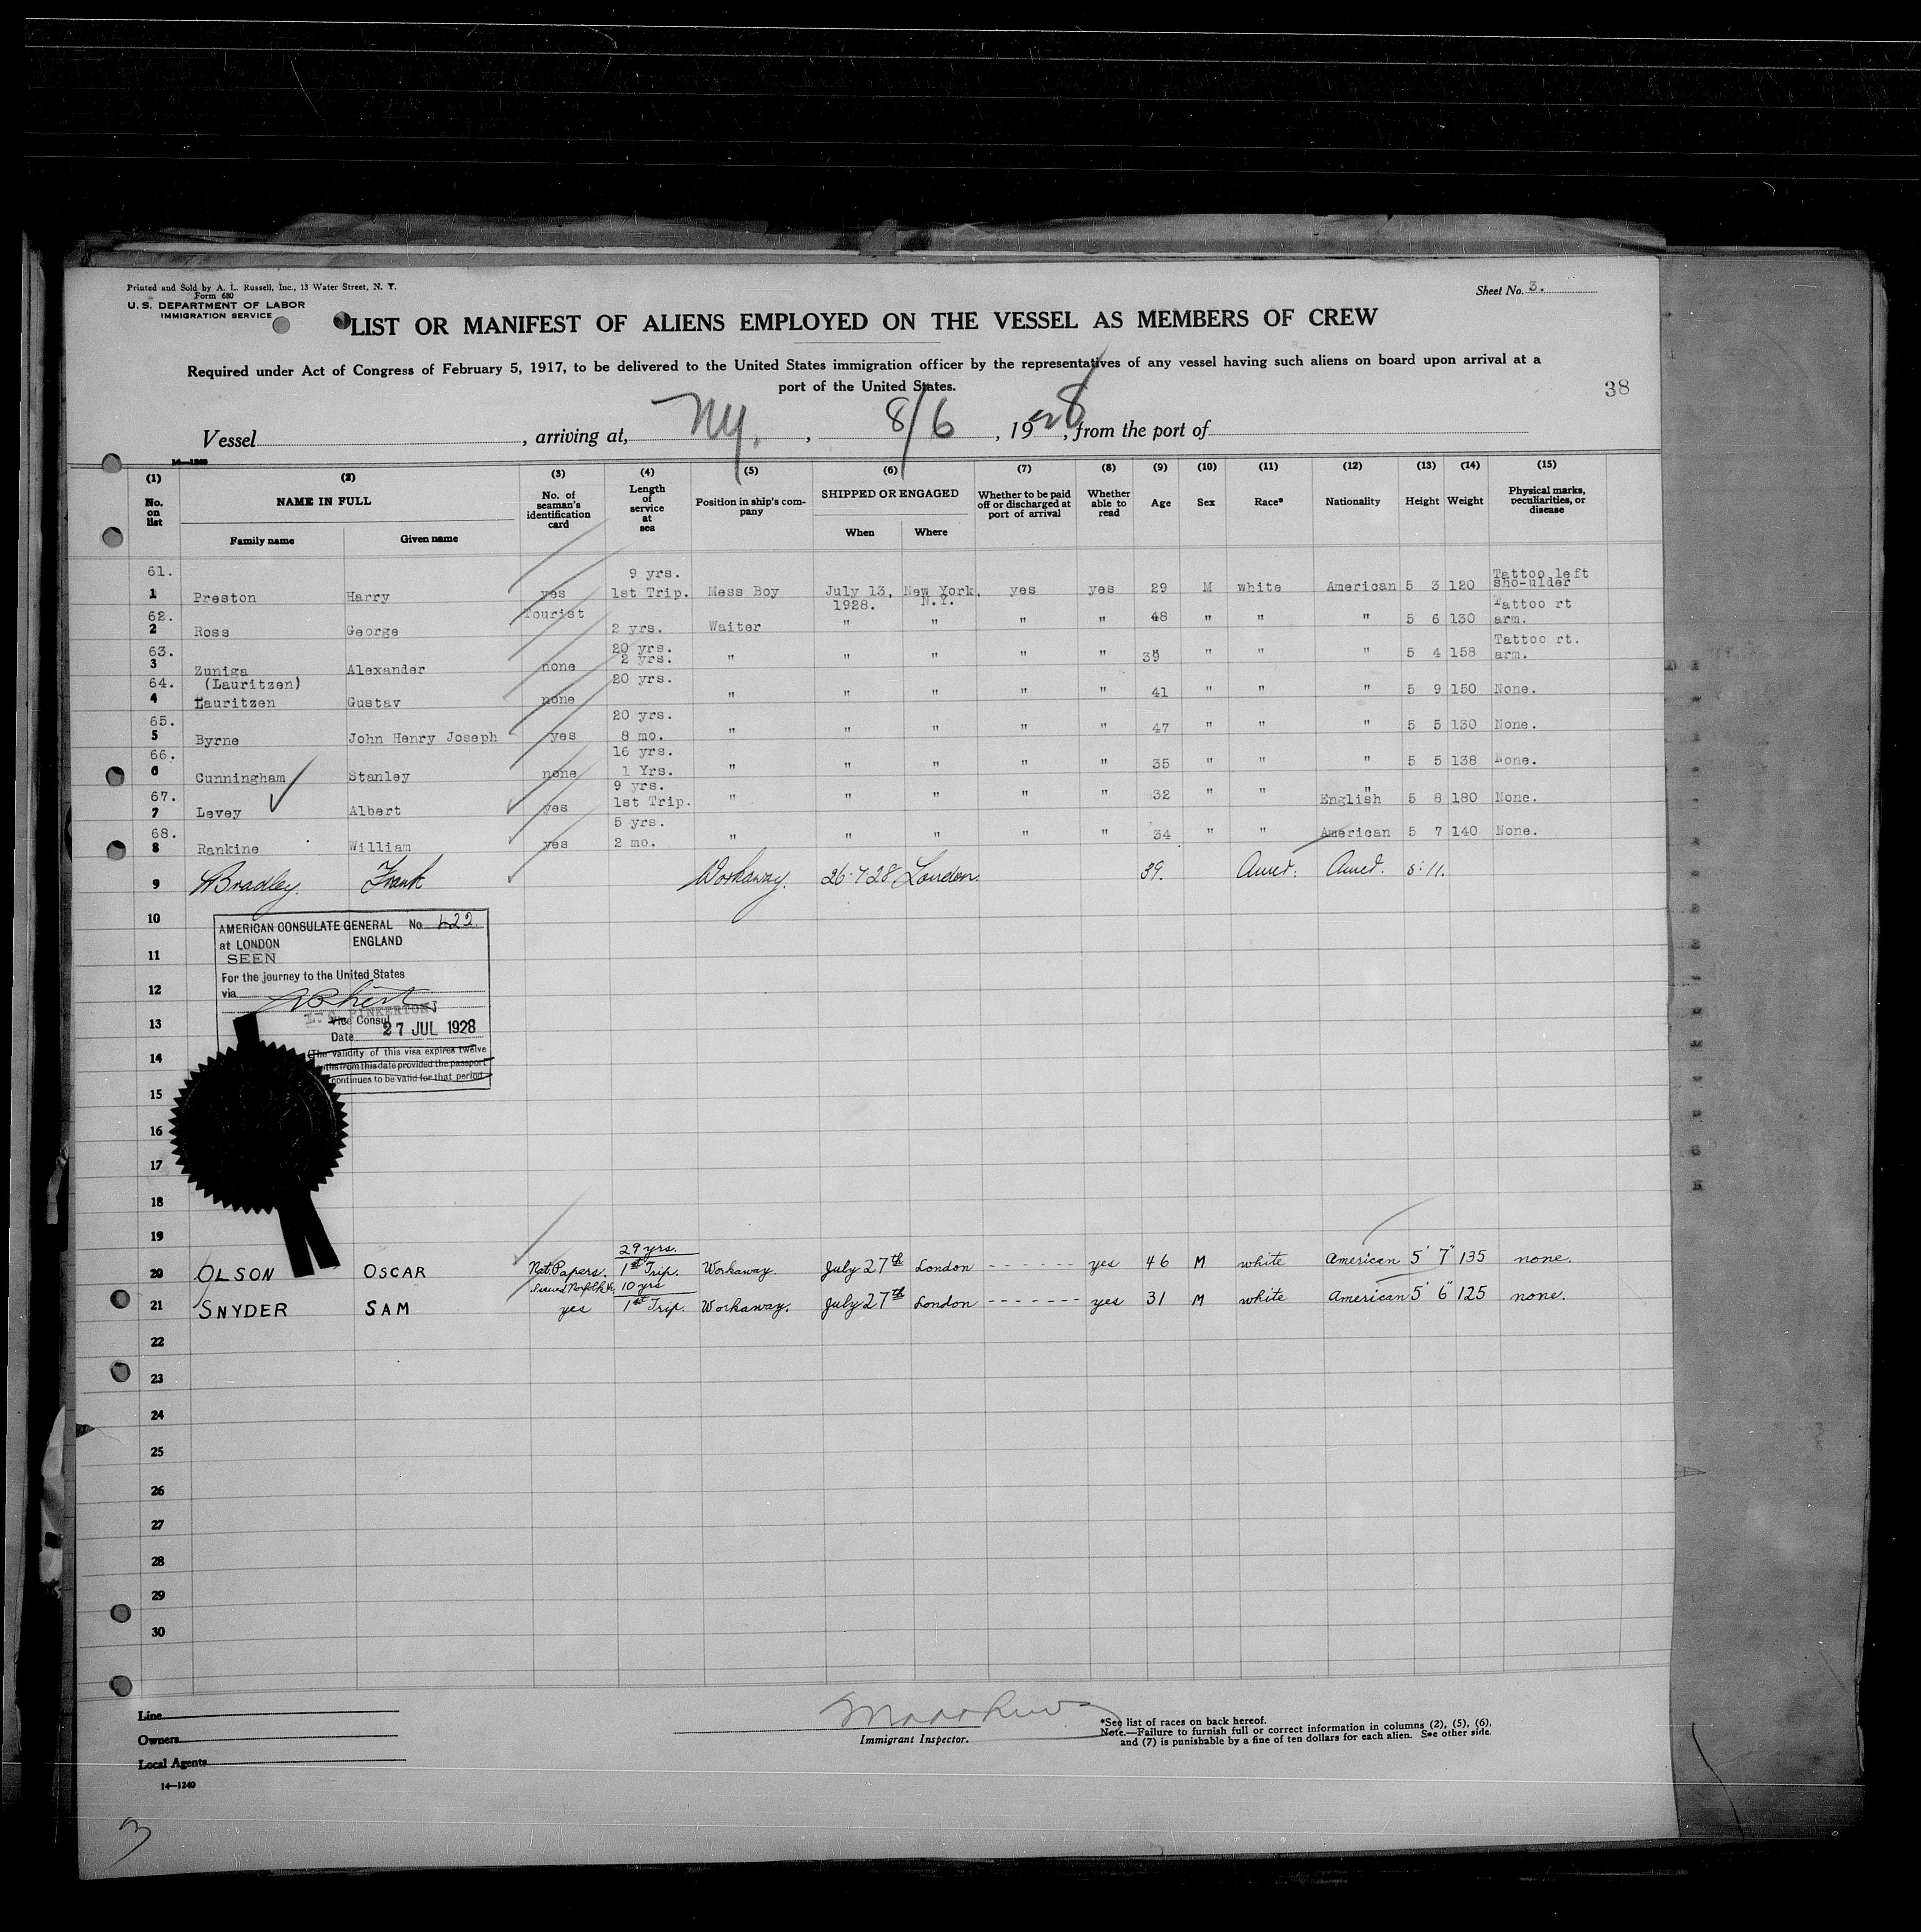 Printed and Sold by A. L. Russell, Inc., 13 Water Street, N. Y.
Form 680
U. S. DEPARTMENT OF LABOR
IMMIGRATION SERVICE
Sheet No. 3.
LIST OR MANIFEST OF ALIENS EMPLOYED ON THE VESSEL AS MEMBERS OF CREW
Required under Act of Congress of February 5, 1917, to be delivered to the United States immigration officer by the representatives of any vessel having such aliens on board upon arrival at a
port of the United States.
38
Vessel , arriving at, NY. , 8/6 , 1928, from the port of
14—1240
(1) (2) (3) (4) (5) (6) (7) (8) (9) (10) (11) (12) (13) (14) (15)
No. on list NAME IN FULL No. of seaman's identification card Length of service at sea Position in ship's company SHIPPED OR ENGAGED Whether to be paid off or discharged at port of arrival Whether able to read Age Sex Race* Nationality Height Weight Physical marks, peculiarities, or disease
Family name Given name When Where
61. 9 yrs. Tattoo left
1 Preston Harry yes 1st Trip. Mess Boy July 13, New York, yes yes 29 M white American 5 3 120 sho-ulder
62. Tourist 1928. N.Y. Tattoo rt
2 Ross George 2 yrs. Waiter " " " " 48 " " " 5 6 130 arm.
63. 20 yrs. Tattoo rt.
3 Zuniga Alexander none 2 yrs. " " " " " 39 " " " 5 4 158 arm.
64. (Lauritzen) 20 yrs.
4 Lauritzen Gustav none " " " " " 41 " " " 5 9 150 None.
65. 20 yrs.
5 Byrne John Henry Joseph yes 8 mo. " " " " " 47 " " " 5 5 130 None.
66. 16 yrs.
6 Cunningham Stanley none 1 Yrs. " " " " " 35 " " " 5 5 138 None.
67. 9 yrs.
7 Levey Albert yes 1st Trip. " " " " " 32 " " English 5 8 180 None.
68. 5 yrs.
8 Rankine William yes 2 mo. " " " " " 34 " " American 5 7 140 None.
9 Bradley. Frank Workaway. 26-7-28 London. 39. Amer. Amer. 5:11.
10
AMERICAN CONSULATE GENERAL No 422
at LONDON ENGLAND
11
SEEN
For the journey to the United States
12
via
PINKERTON
13
Vice Consul
Date 27 JUL 1928
14
(The validity of this visa expires twelve
ths from this date provided the passport
continues to be valid for that period
15
16
17
18
19
29 yrs.
20 OLSON OSCAR Nat. Papers. 1st Trip. Workaway. July 27th London - - - - - - yes 46 M white American 5' 7" 135 none.
Issued Norfolk Va. 10 yrs
21 SNYDER SAM yes 1st Trip. Workaway. July 27th London - - - - - - - yes 31 M white American 5' 6" 125 none.
22
23
24
25
26
27
28
29
30
Line
Owners
Local Agents
14—1240
Immigrant Inspector.
*See list of races on back hereof.
Note.—Failure to furnish full or correct information in columns (2), (5), (6),
and (7) is punishable by a fine of ten dollars for each alien. See other side.
3